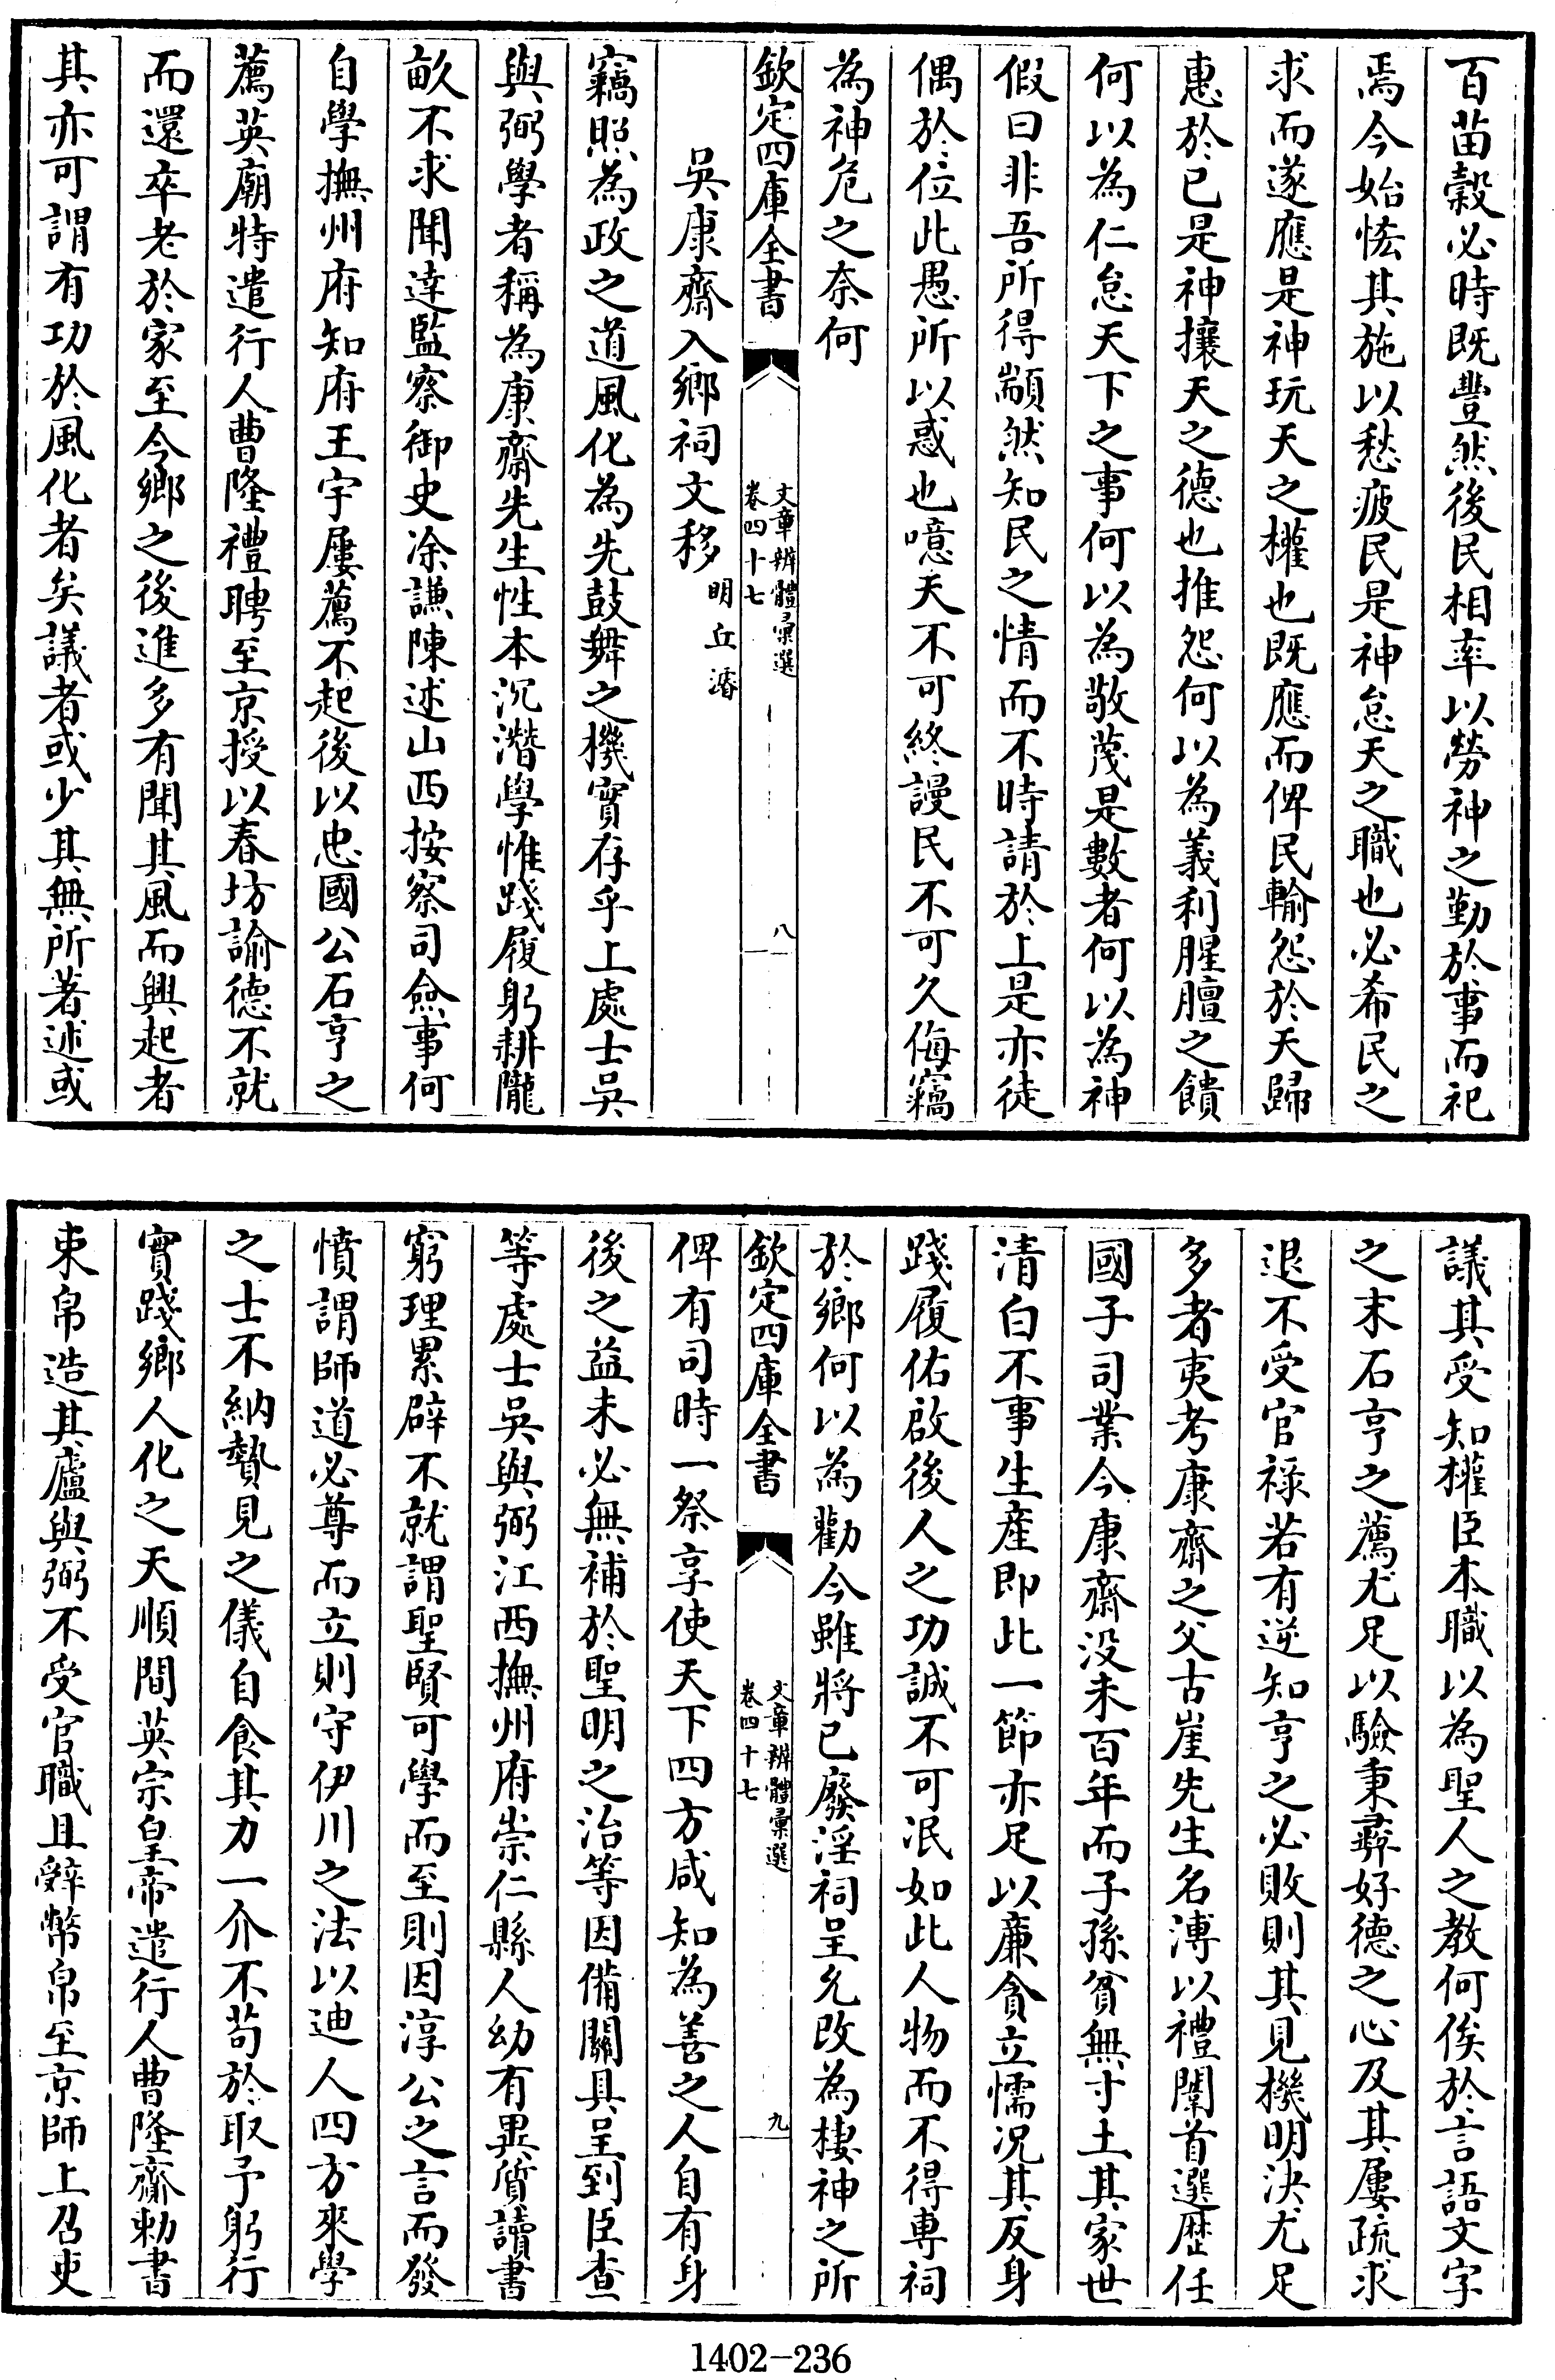 百苗穀必時既豐然後民相率以勞神之勤於事而祀
焉今始恡其施以愁疲民是神怠天之職也必希民之
求而遂應是神玩天之權也既應而俾民輸怨於天歸
惠於已是神攘天之德也推怨何以為義利腥膻之饋
何以為仁怠天下之事何以為敬蔑是數者何以為神
假曰非吾所得顓然知民之情而不時請於上是亦徒
偶於位此愚所以惑也噫天不可終謾民不可久侮竊
為神危之奈何
欽定四庫全書
文章辨體彙選
卷四十七
八
吳康齋入鄉祠文移
明丘濬
竊照為政之道風化為先鼓舞之機實存乎上處士吳
與弼學者稱為康齋先生性本沉潛學惟踐履躬耕隴
畝不求聞達監察御史涂謙陳述山西按察司僉事何
自學撫州府知府王宇屢薦不起後以忠國公石亨之
薦英廟特遣行人曹隆禮聘至京授以春坊諭德不就
而還卒老於家至今鄉之後進多有聞其風而興起者
其亦可謂有功於風化者矣議者或少其無所著述或
議其受知權臣本職以為聖人之教何俟於言語文字
之末石亨之薦尤足以驗秉彞好德之心及其屢疏求
退不受官祿若有逆知亨之必敗則其見機明決尤足
多者夷考康齋之父古崖先生名溥以禮闈首選歷任
國子司業今康齋沒未百年而子孫貧無寸土其家世
清白不事生産即此一節亦足以廉貪立懦况其反身
踐履佑啟後人之功誠不可泯如此人物而不得專祠
於鄉何以為勸今雖將已廢淫祠呈允改為棲神之所
欽定四庫全書
文章辨體彙選
卷四十七
九
俾有司時一祭享使天下四方咸知為善之人自有身
後之益未必無補於聖明之治等因備關具呈到臣查
等處士吳與弼江西撫州府崇仁縣人幼有異質讀書
窮理累辟不就謂聖賢可學而至則因淳公之言而發
憤謂師道必尊而立則守伊川之法以迪人四方來學
之士不納贄見之儀自食其力一介不苟於取予躬行
實踐鄉人化之天順間英宗皇帝遣行人曹隆齎勅書
束帛造其廬與弼不受官職且辭幣帛至京師上召吏
1402-236